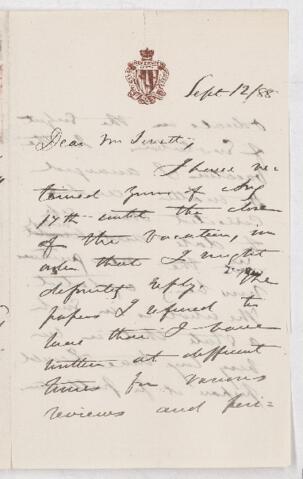 Sept 12/88
Dear Mr
I have re-
tained yours of Aug
17th until the close
of the vacation, in
order that I might
definitely reply. The
papers I referred to
were those I have
written at different
times for various
reviews and peri=